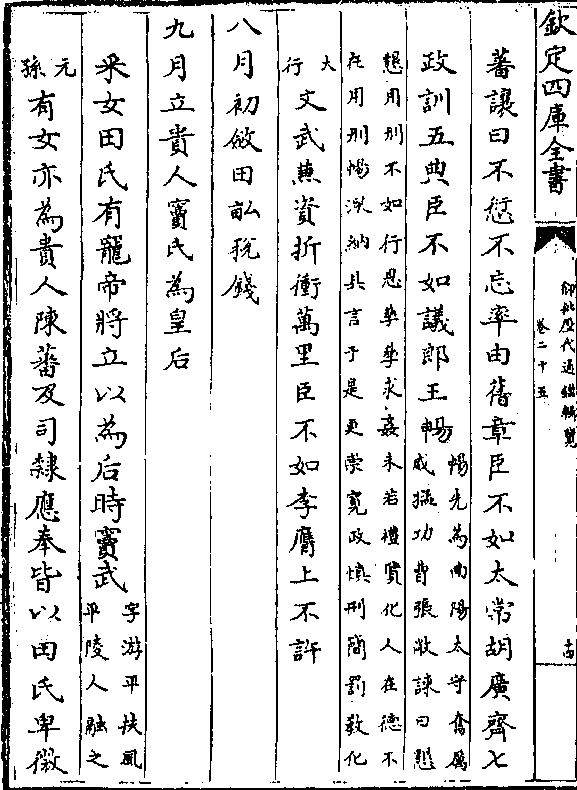 欽定四庫全書
御批歷代通鑑輯覽
卷二十五
十四
蕃讓曰不愆不忘率由舊章臣不如太常胡廣齊七
政訓五典臣不如議郎王暢
暢先為南陽太守奮厲
威猛功曹張敞諫曰懇
懇用刑不如行恩孳孳求姦未若禮賢化人在德不
在用刑暢深納其言于是更崇寬政慎刑簡罰教化
大
行
文武兼資折衝萬里臣不如李膺上不許
八月初斂田畝稅錢
九月立貴人竇氏為皇后
采女田氏有寵帝將立以為后時竇武
字游平扶風
平陵人融之
元
孫
有女亦為貴人陳蕃及司隸應奉皆以田氏卑微